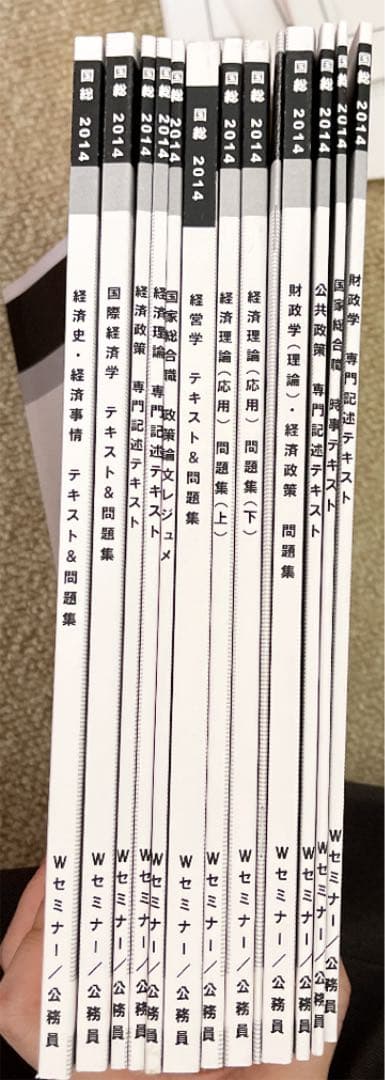 国総 2014 経済史・経済事情 テキスト&問題集 Wセミナー/公務員
国総 2014 国際経済学 テキスト&問題集 Wセミナー/公務員
国総 2014 経済政策 専門記述テキスト Wセミナー/公務員
国総 2014 経済理論 専門記述テキスト Wセミナー/公務員
国総 2014 国家総合職 政策論文レジュメ Wセミナー/公務員
国総 2014 経営学 テキスト&問題集 Wセミナー/公務員
国総 2014 経済理論(応用) 問題集(上) Wセミナー/公務員
国総 2014 経済理論(応用) 問題集(下) Wセミナー/公務員
国総 2014 財政学(理論)・経済政策 問題集 Wセミナー/公務員
国総 2014 公共政策 専門記述テキスト Wセミナー/公務員
国総 2014 国家総合職 時事テキスト Wセミナー/公務員
国総 2014 財政学 専門記述テキスト Wセミナー/公務員